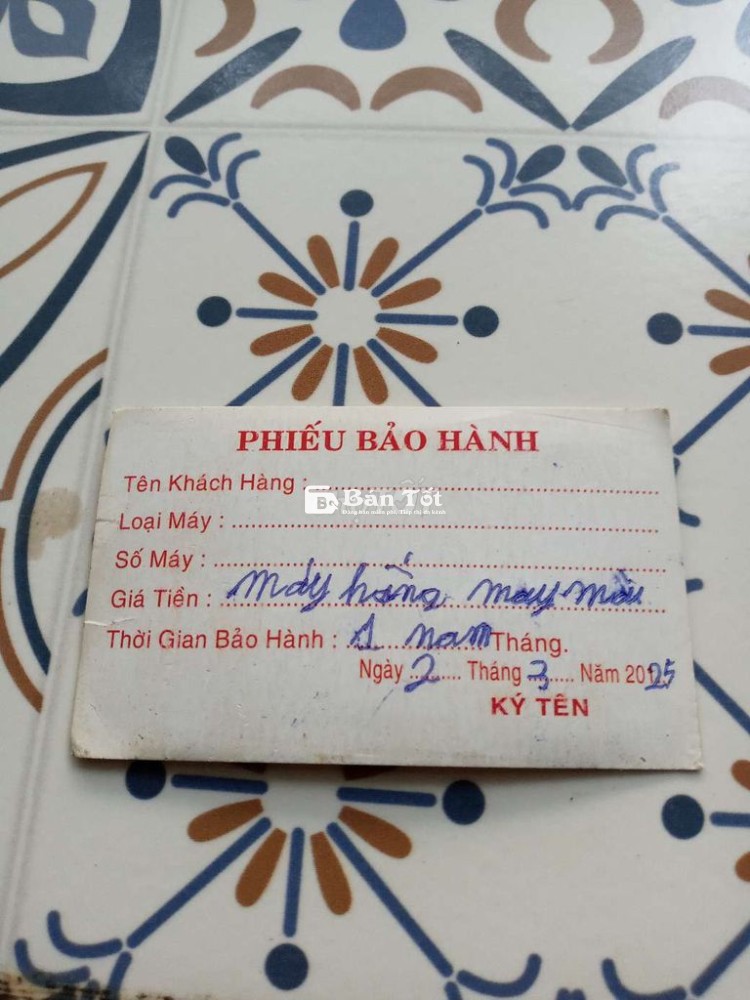 PHIẾU BẢO HÀNH
Tên Khách Hàng :
Bán Tốt
Loại Máy :
Số Máy :
Giá Tiền : máy hồng may mài
Thời Gian Bảo Hành : 1 nam Tháng.
Ngày 2 Tháng 3 Năm 2025
KÝ TÊN